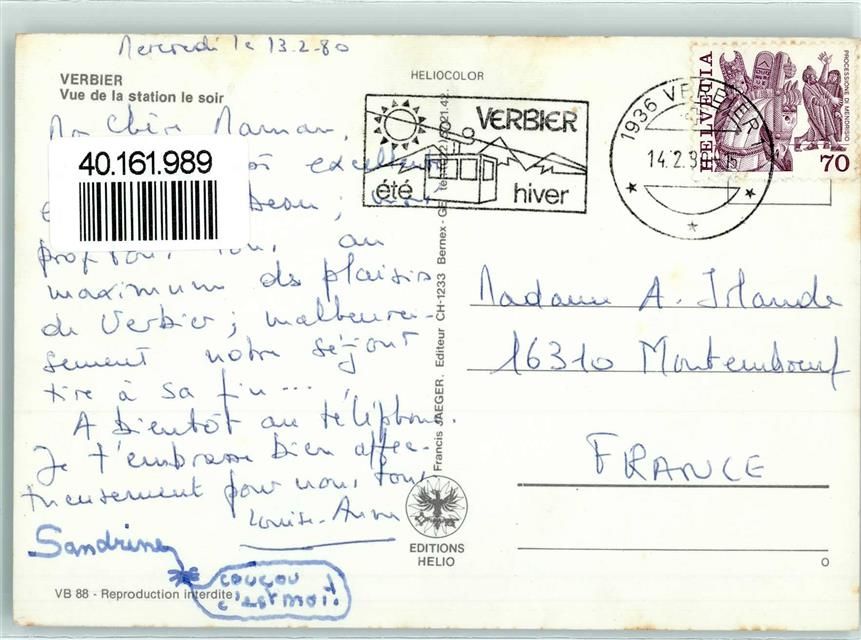 Mercredi le 13.2.80
VERBIER
Vue de la station le soir
HELIOCOLOR
Ma Chère Maman,
40.161.989
excellent
beau ;
profitons tous au
maximum des plaisirs
de Verbier ; malheureu-
sement notre séjour
tire à sa fin ...
A bientôt au téléphone.
Je t'embrasse bien affec-
tueusement pour nous tous
Louise-Anne
Sandrine
COUCOU
C'EST MOI !
VB 88 - Reproduction interdite
Francis JAEGER. Editeur CH-1233 Bernex - GE
EDITIONS
HELIO
VERBIER
été
hiver
1936 VERBIER 1
14.2.8
HELVETIA
PROCESSIONE DI MENDRISIO
70
Madame A. Irlande
16310 Montemboeuf
FRANCE